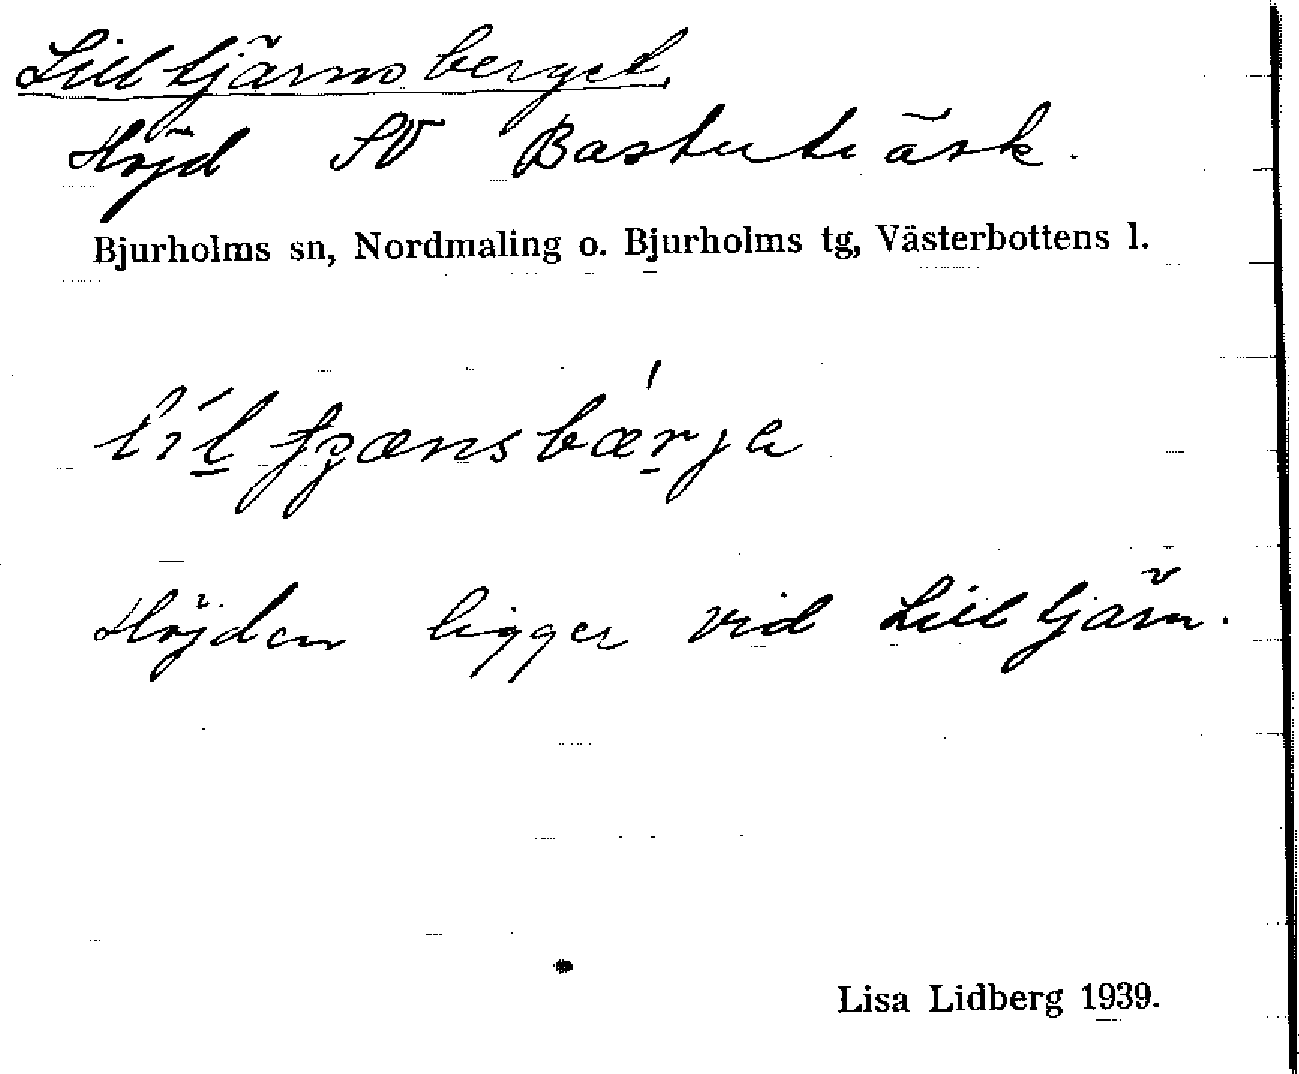 Lilltjärnsberget
Höjd SV Bastuträsk.
Bjurholms sn, Nordmaling o. Bjurholms tg, Västerbottens l.
Höjden ligger vid Lilltjärn.
Lisa Lidberg 1939.